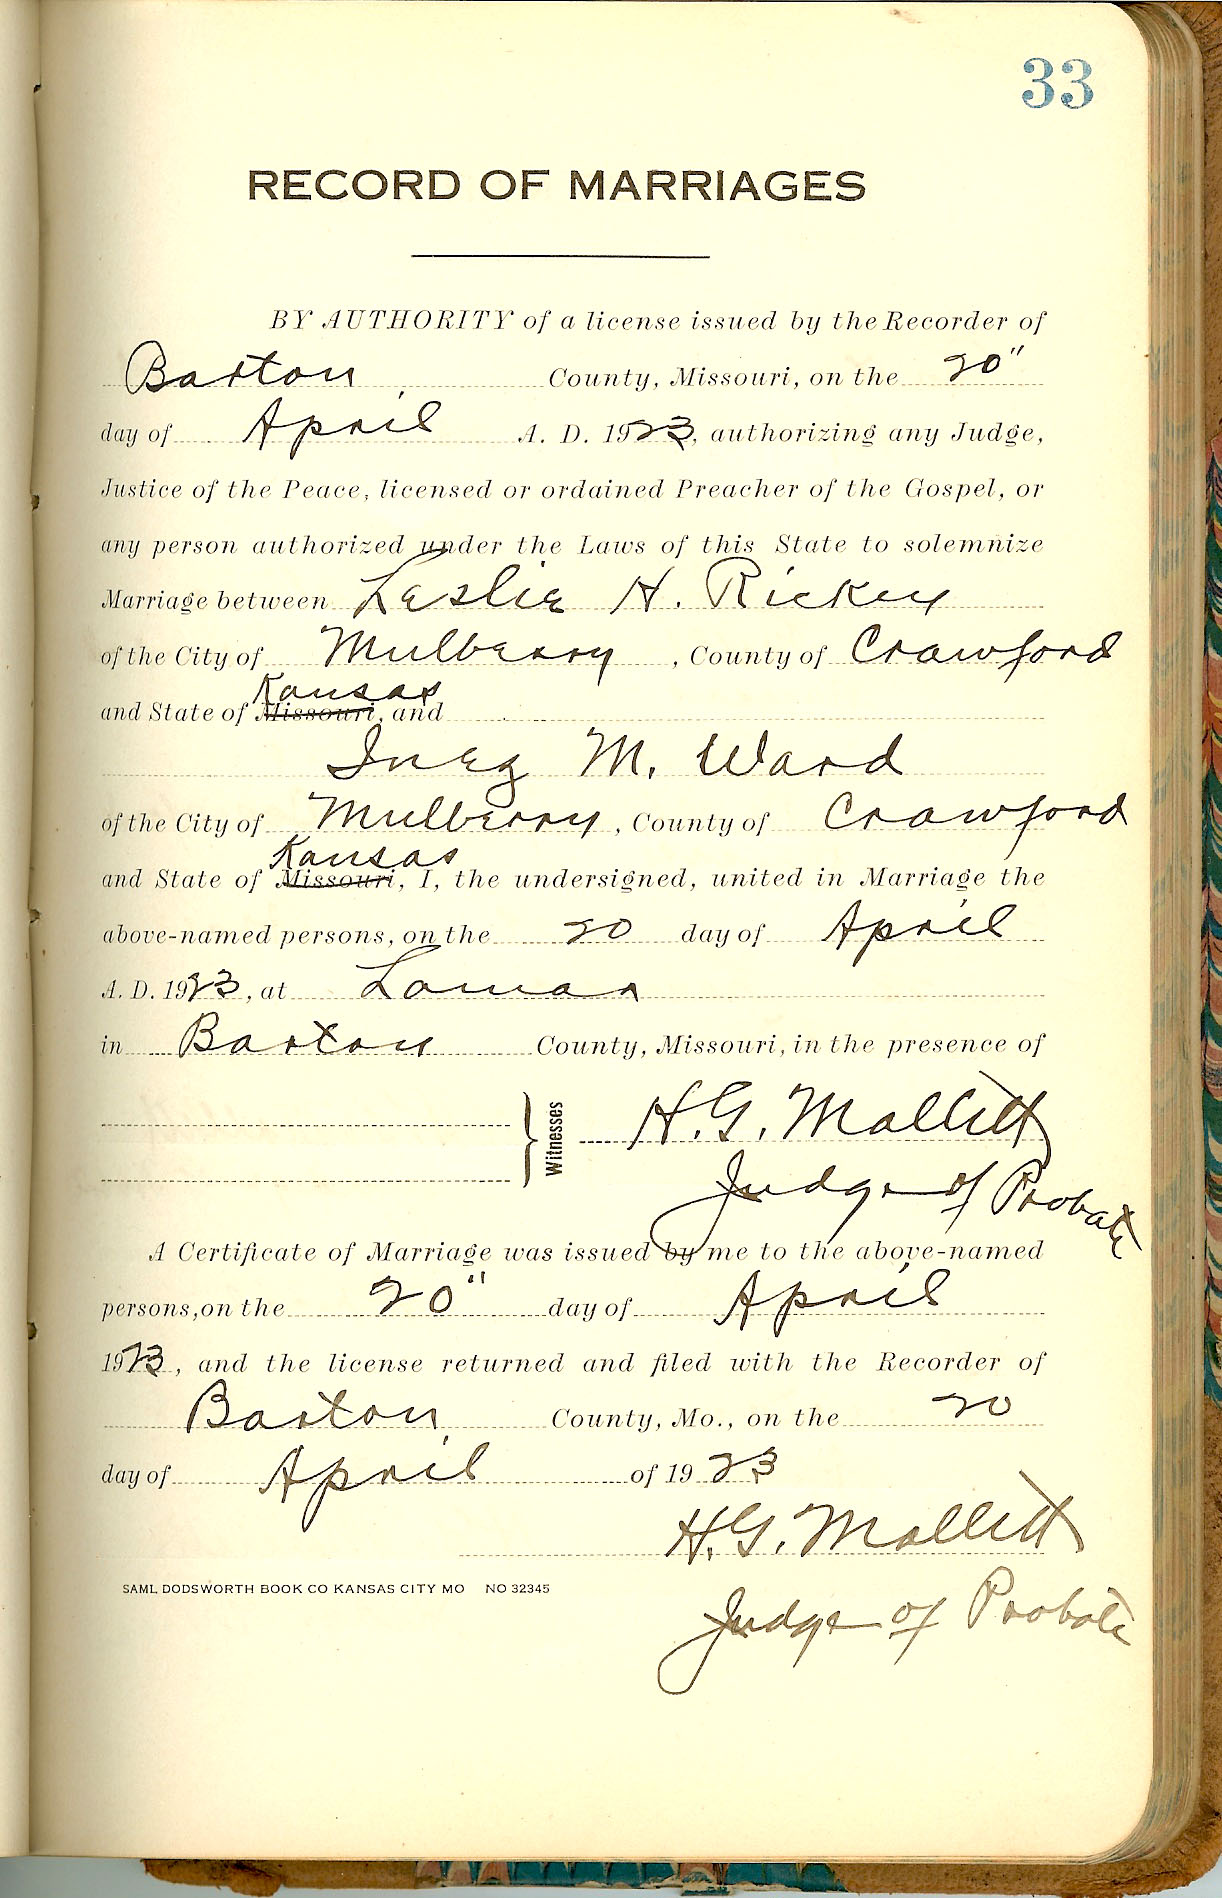 33
RECORD OF MARRIAGES
BY AUTHORITY of a license issued by the Recorder of
Barton County, Missouri, on the 20"
day of April A. D. 1923, authorizing any Judge,
Justice of the Peace, licensed or ordained Preacher of the Gospel, or
any person authorized under the Laws of this State to solemnize
Marriage between Leslie H. Rickey
of the City of Mulberry, County of Crawford
Kansas
and State of Missouri, and
Inez M. Ward
of the City of Mulberry, County of Crawford
Kansas
and State of Missouri, I, the undersigned, united in Marriage the
above-named persons, on the 20 day of April
A. D. 1923, at Lamar
in Barton County, Missouri, in the presence of
Witnesses H. G. Mallett
Judge of Probate
A Certificate of Marriage was issued by me to the above-named
persons, on the 20" day of April
1923, and the license returned and filed with the Recorder of
Barton, County, Mo., on the 20
day of April of 1923
H. G. Mallett
SAML DODSWORTH BOOK CO KANSAS CITY MO NO 32345
Judge of Probate